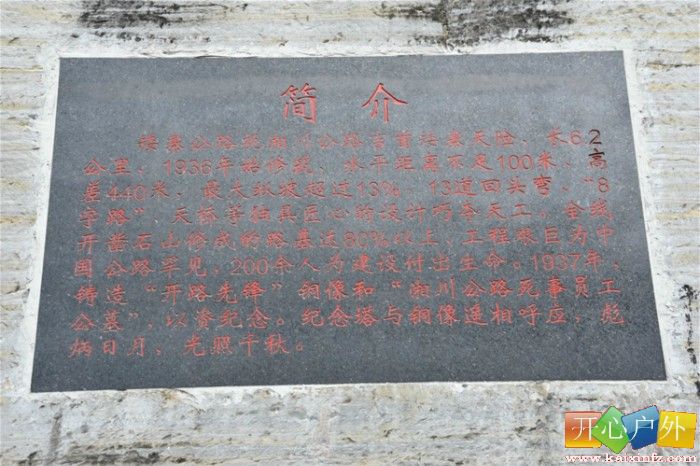 简介
矮寨公路就湘川公路吉首矮寨天险，长6.2
公里，1936年始修筑，水平距离不足100米、高
差440米，最大纵坡超过13%。13道回头弯、“8
字路”、天桥等独具匠心的设计巧夺天工。全线
开凿石山修成的路基达80%以上，工程艰巨为中
国公路罕见，200余人为建设付出生命。1937年，
铸造“开路先锋”铜像和“湘川公路死事员工
公墓”，以资纪念。纪念塔与铜像遥相呼应，彪
炳日月，光照千秋。
开心户外
www.kaixinfz.com